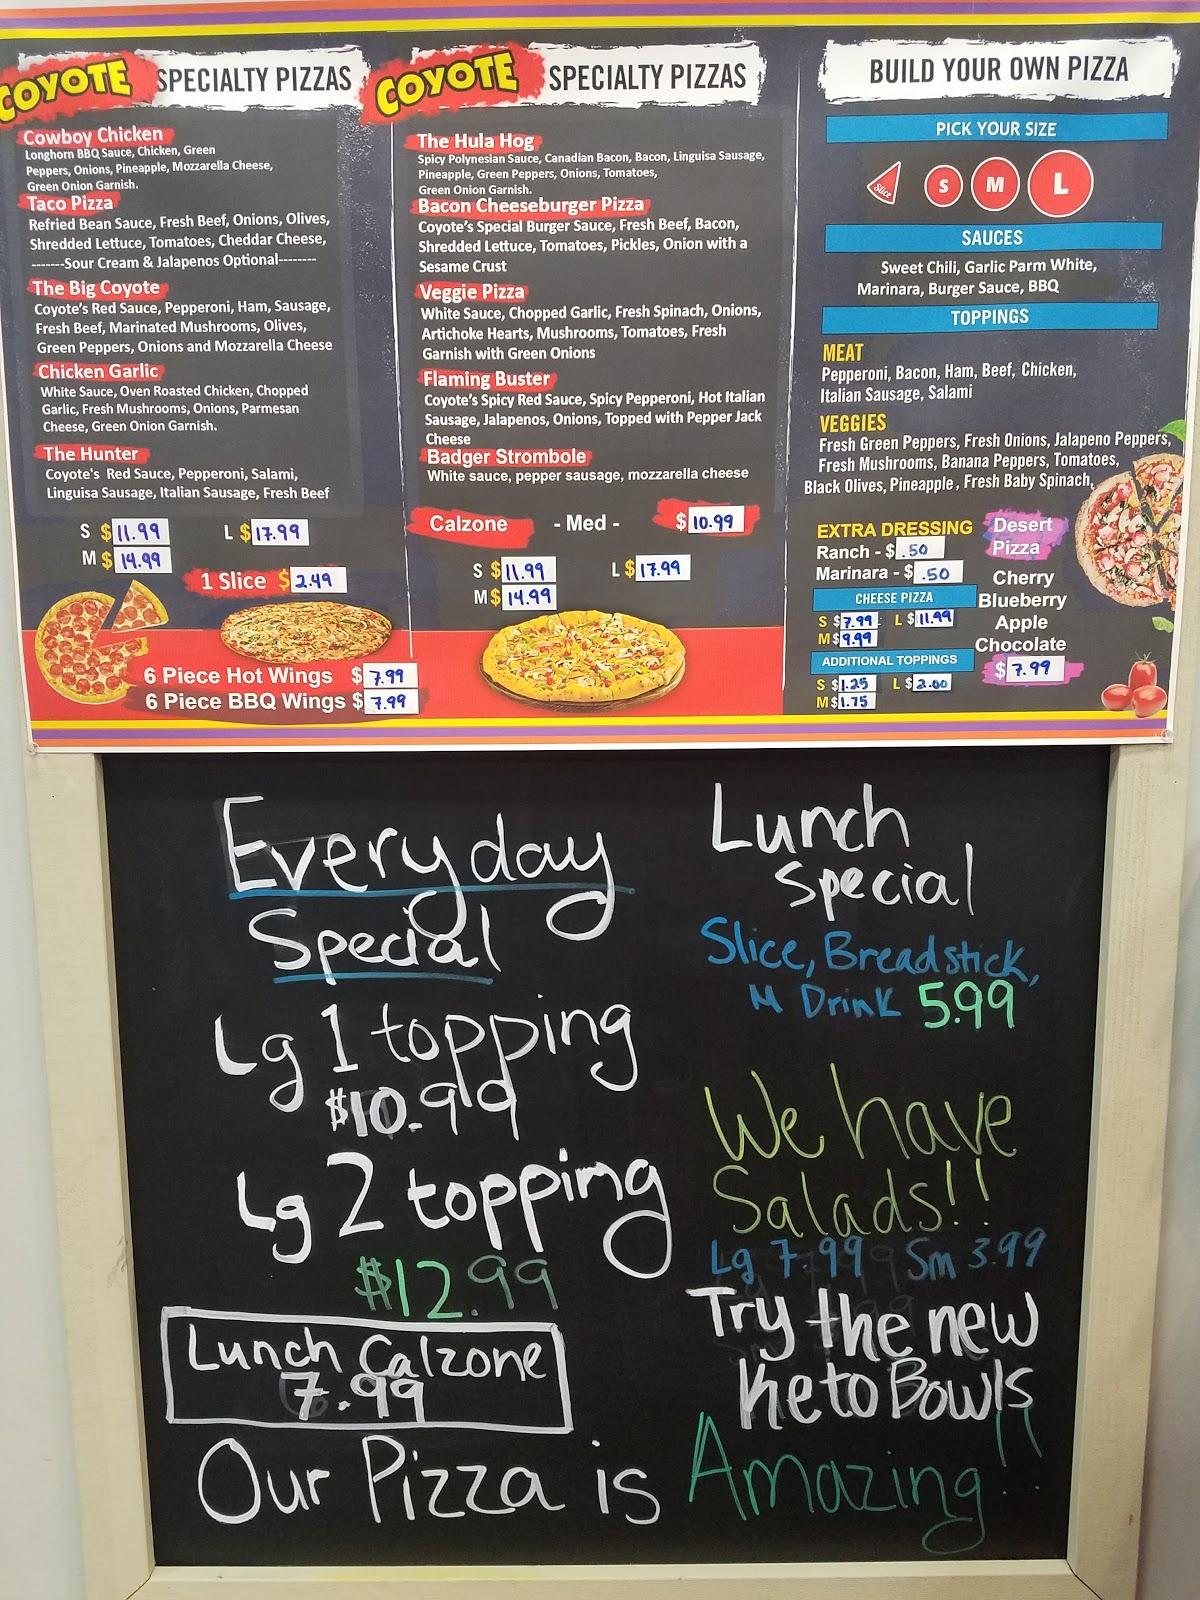 COYOTE SPECIALTY PIZZAS
Cowboy Chicken
Longhorn BBQ Sauce, Chicken, Green
Peppers, Onions, Pineapple, Mozzarella Cheese,
Green Onion Garnish.
Taco Pizza
Refried Bean Sauce, Fresh Beef, Onions, Olives,
Shredded Lettuce, Tomatoes, Cheddar Cheese,
-------Sour Cream & Jalapenos Optional--------
The Big Coyote
Coyote's Red Sauce, Pepperoni, Ham, Sausage,
Fresh Beef, Marinated Mushrooms, Olives,
Green Peppers, Onions and Mozzarella Cheese
Chicken Garlic
White Sauce, Oven Roasted Chicken, Chopped
Garlic, Fresh Mushrooms, Onions, Parmesan
Cheese, Green Onion Garnish.
The Hunter
Coyote's Red Sauce, Pepperoni, Salami,
Linguisa Sausage, Italian Sausage, Fresh Beef
S $11.99 L $17.99
M $14.99
1 Slice $2.49
6 Piece Hot Wings $7.99
6 Piece BBQ Wings $7.99
COYOTE SPECIALTY PIZZAS
The Hula Hog
Spicy Polynesian Sauce, Canadian Bacon, Bacon, Linguisa Sausage,
Pineapple, Green Peppers, Onions, Tomatoes,
Green Onion Garnish.
Bacon Cheeseburger Pizza
Coyote's Special Burger Sauce, Fresh Beef, Bacon,
Shredded Lettuce, Tomatoes, Pickles, Onion with a
Sesame Crust
Veggie Pizza
White Sauce, Chopped Garlic, Fresh Spinach, Onions,
Artichoke Hearts, Mushrooms, Tomatoes, Fresh
Garnish with Green Onions
Flaming Buster
Coyote's Spicy Red Sauce, Spicy Pepperoni, Hot Italian
Sausage, Jalapenos, Onions, Topped with Pepper Jack
Cheese
Badger Strombole
White sauce, pepper sausage, mozzarella cheese
Calzone - Med - $10.99
S $11.99 L $17.99
M $14.99
BUILD YOUR OWN PIZZA
PICK YOUR SIZE
Slice S M L
SAUCES
Sweet Chili, Garlic Parm White,
Marinara, Burger Sauce, BBQ
TOPPINGS
MEAT
Pepperoni, Bacon, Ham, Beef, Chicken,
Italian Sausage, Salami
VEGGIES
Fresh Green Peppers, Fresh Onions, Jalapeno Peppers,
Fresh Mushrooms, Banana Peppers, Tomatoes,
Black Olives, Pineapple, Fresh Baby Spinach,
EXTRA DRESSING
Ranch - $ .50
Marinara - $ .50
CHEESE PIZZA
S $7.99 L $11.99
M $9.99
ADDITIONAL TOPPINGS
S $1.25 L $2.00
M $1.75
Desert
Pizza
Cherry
Blueberry
Apple
Chocolate
$7.99
Everyday
Special
Lg 1 topping
$10.99
Lg 2 topping
$12.99
Lunch Calzone
7.99
Lunch
Special
Slice, Breadstick,
M Drink 5.99
We have
Salads!!
Lg 7.99 Sm 3.99
Try the new
Keto Bowls
Our Pizza is Amazing!!